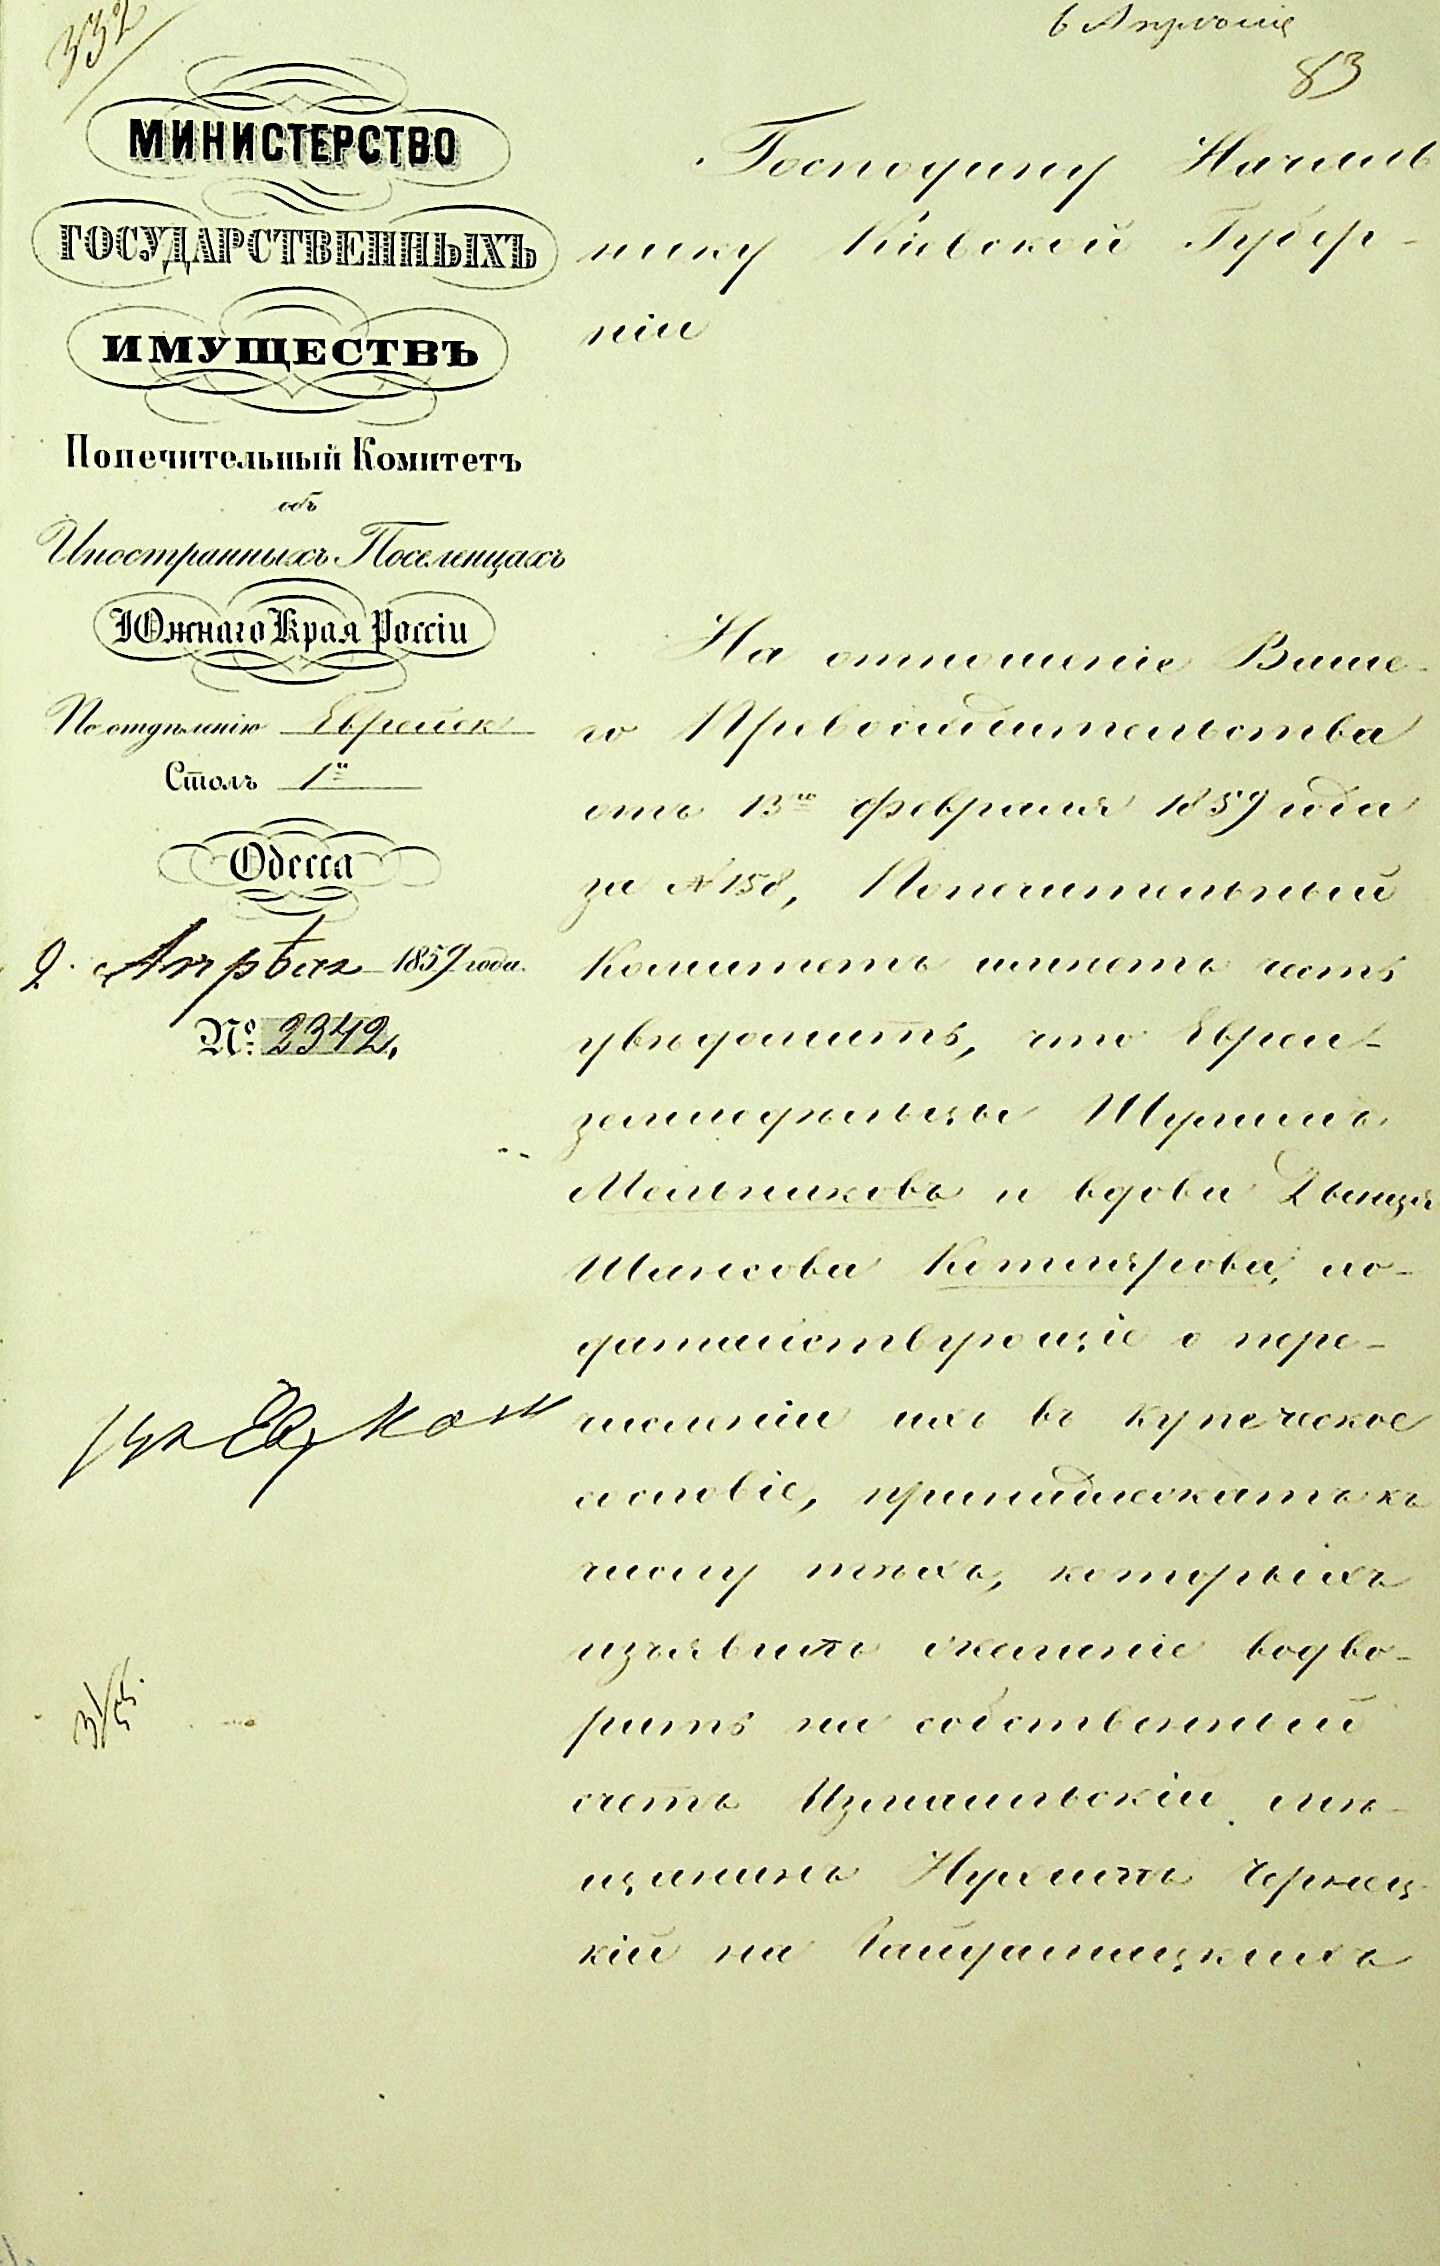 332
6 Апрѣля
83
МИНИСТЕРСТВО
ГОСУДАРСТВЕННЫХЪ
ИМУЩЕСТВЪ
Попечительный Комитетъ
объ
Иностранныхъ Поселенцахъ
Южнаго Края Россіи
По отдѣленію Еврейск
Столъ 1й
Одесса
2. Апрѣля 1859 года.
№ 2342.
Господину Началь
нику Кіевской Губер-
ніи
На отношеніе Ваше-
го Превосходительства
отъ 13го февраля 1859 года
за № 158, Попечительный
Комитетъ имѣетъ честь
увѣдомить, что Евреи-
земледѣльцы
Мельниковъ и вдова
Котлярова, хо-
датайствующіе о пере-
численіи ихъ въ купеческое
сословіе, принадлежатъ къ
числу тѣхъ, которыхъ
изъявилъ желаніе водво-
рить на собственный
счетъ Измаильскій мѣ-
щанинъ Чернец-
кій на